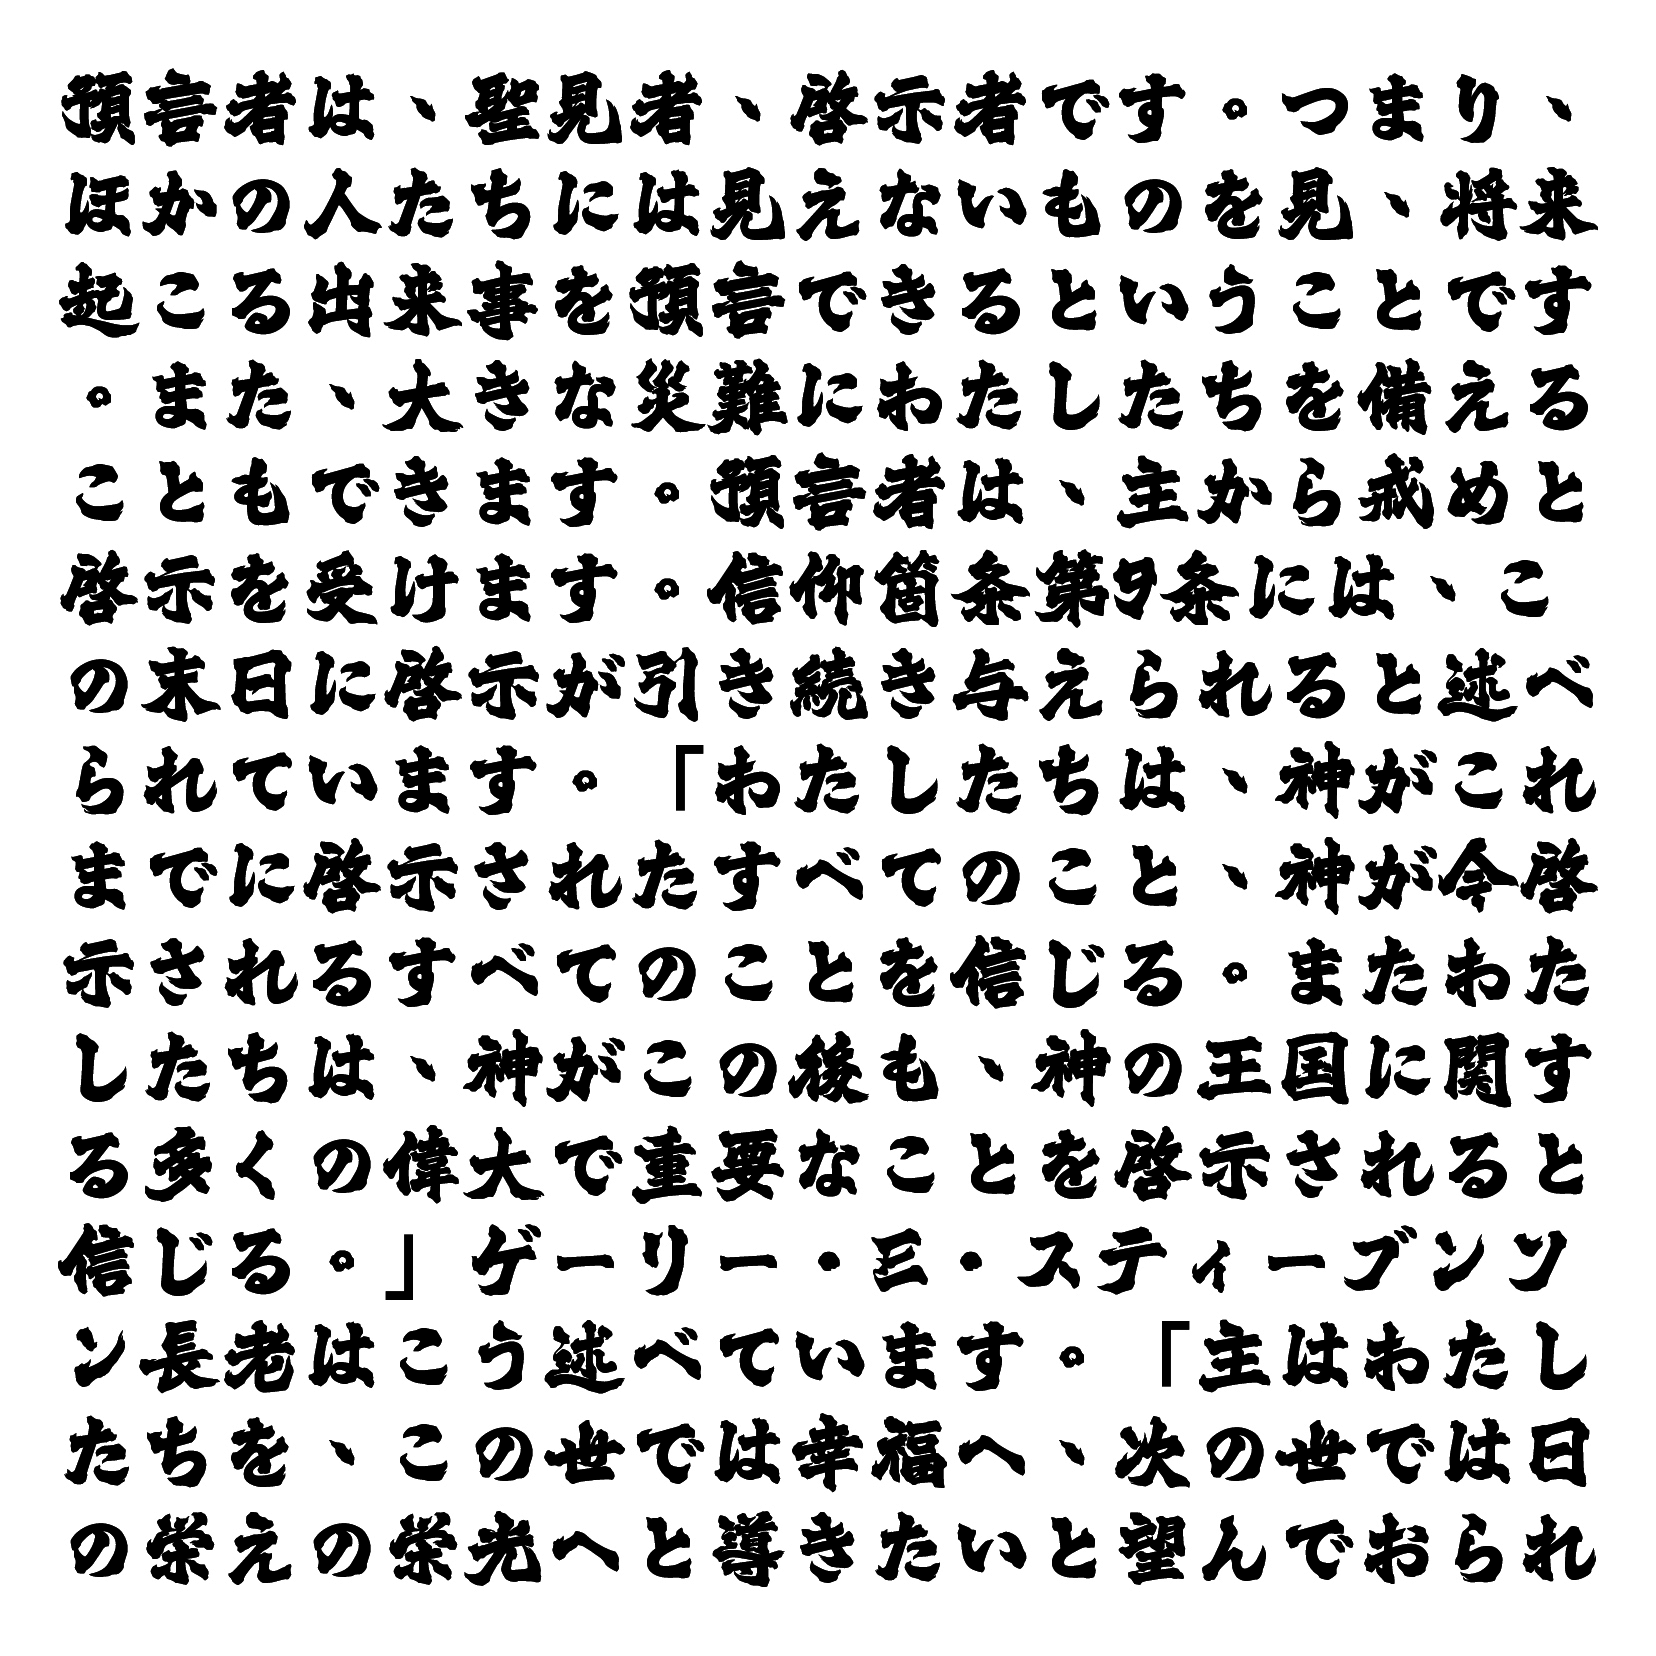 預言者は、聖見者、啓示者です。つまり、
ほかの人たちには見えないものを見、将来
起こる出来事を預言できるということです
。また、大きな災難にわたしたちを備える
こともできます。預言者は、主から戒めと
啓示を受けます。信仰箇条第9条には、こ
の末日に啓示が引き続き与えられると述べ
られています。「わたしたちは、神がこれ
までに啓示されたすべてのこと、神が今啓
示されるすべてのことを信じる。またわた
したちは、神がこの後も、神の王国に関す
る多くの偉大で重要なことを啓示されると
信じる。」ゲーリー・E・スティーブンソ
ン長老はこう述べています。「主はわたし
たちを、この世では幸福へ、次の世では日
の栄えの栄光へと導きたいと望んでおられ